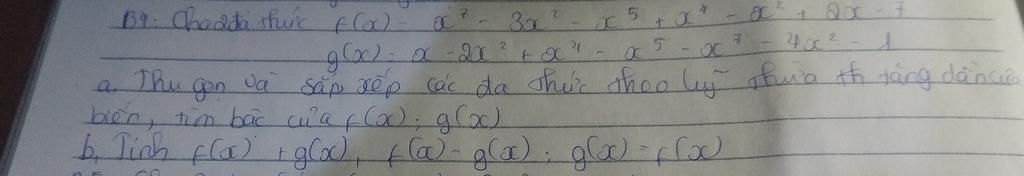 B4: Cho 2 đa thức f(x) = x⁷ - 3x² - x⁵ + x⁴ - x² + 2x - 7
g(x) = x - 2x² + x⁴ - x⁵ - x⁷ - 4x² - 1
a, Thu gọn và sắp xếp các đa thức theo luỹ thừa th tăng dần của
biến, tìm bậc của f(x); g(x)
b, Tính f(x) + g(x), f(x) - g(x); g(x) - f(x)